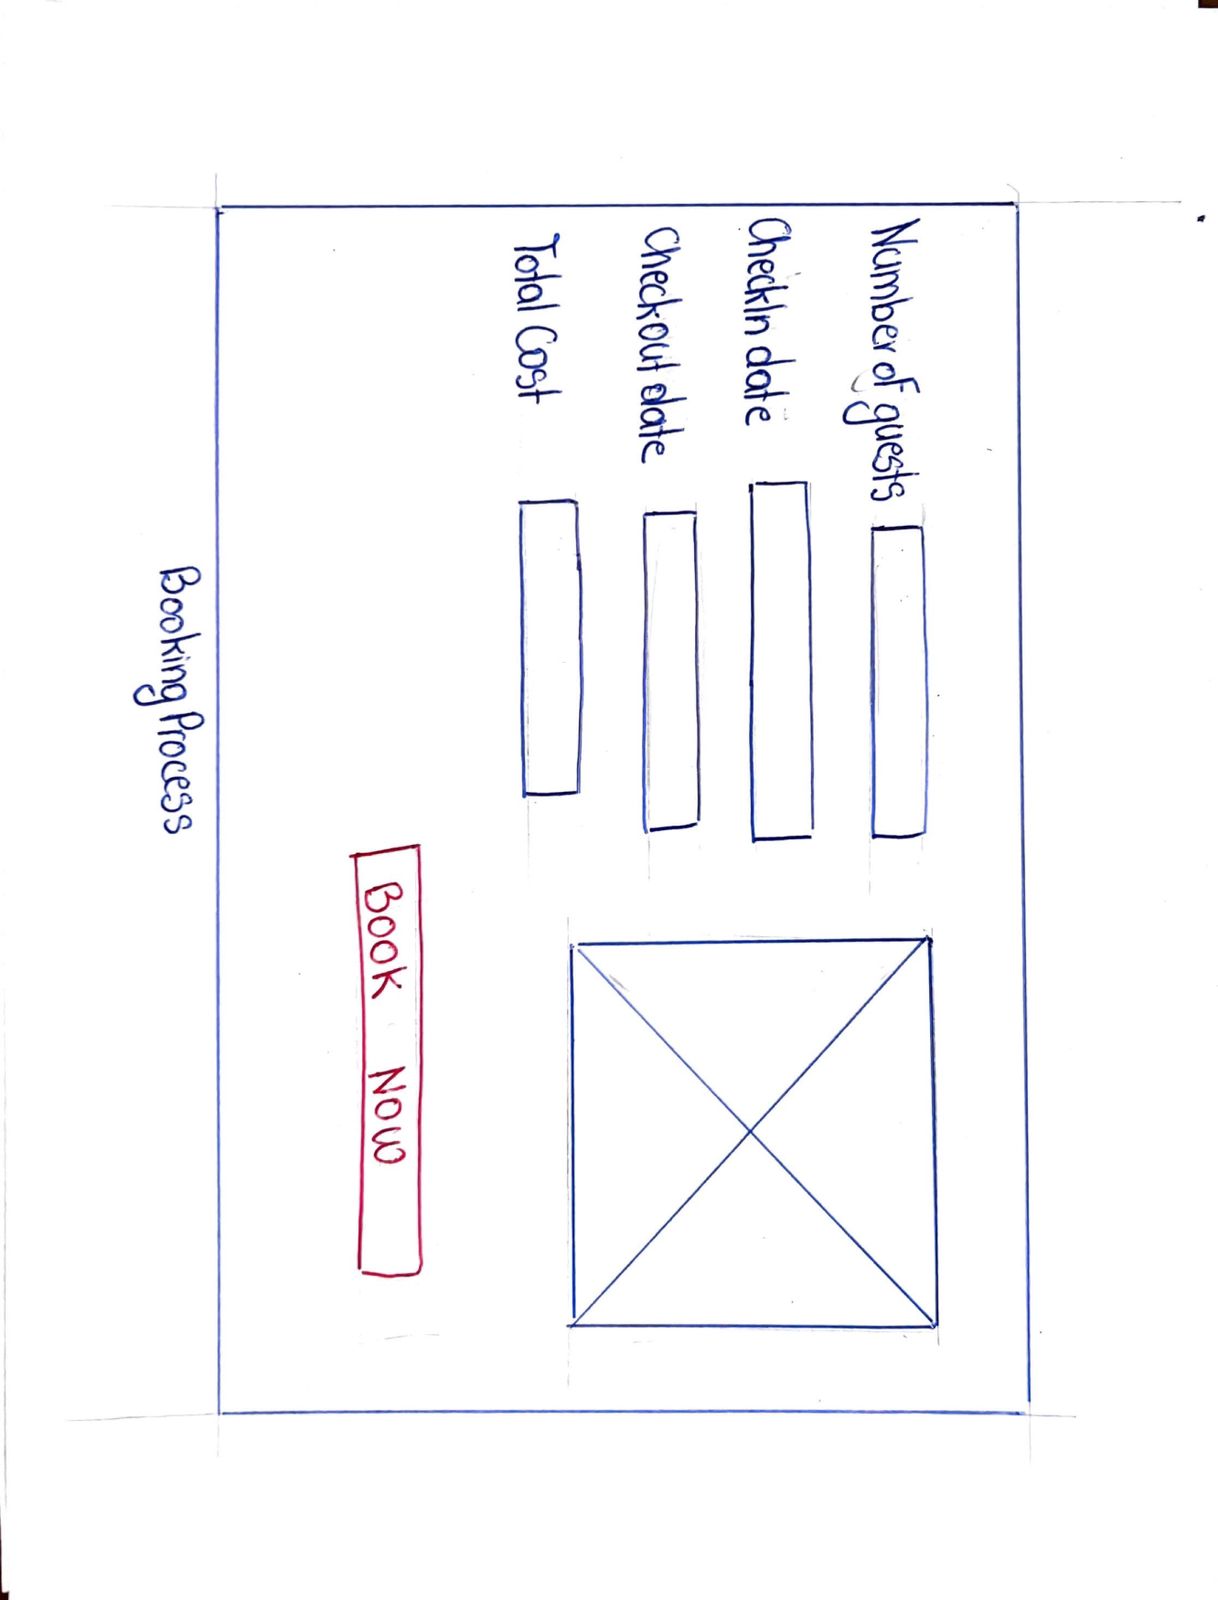 Number of guests
CheckIn date
Checkout date
Total Cost
Book Now
Booking Process